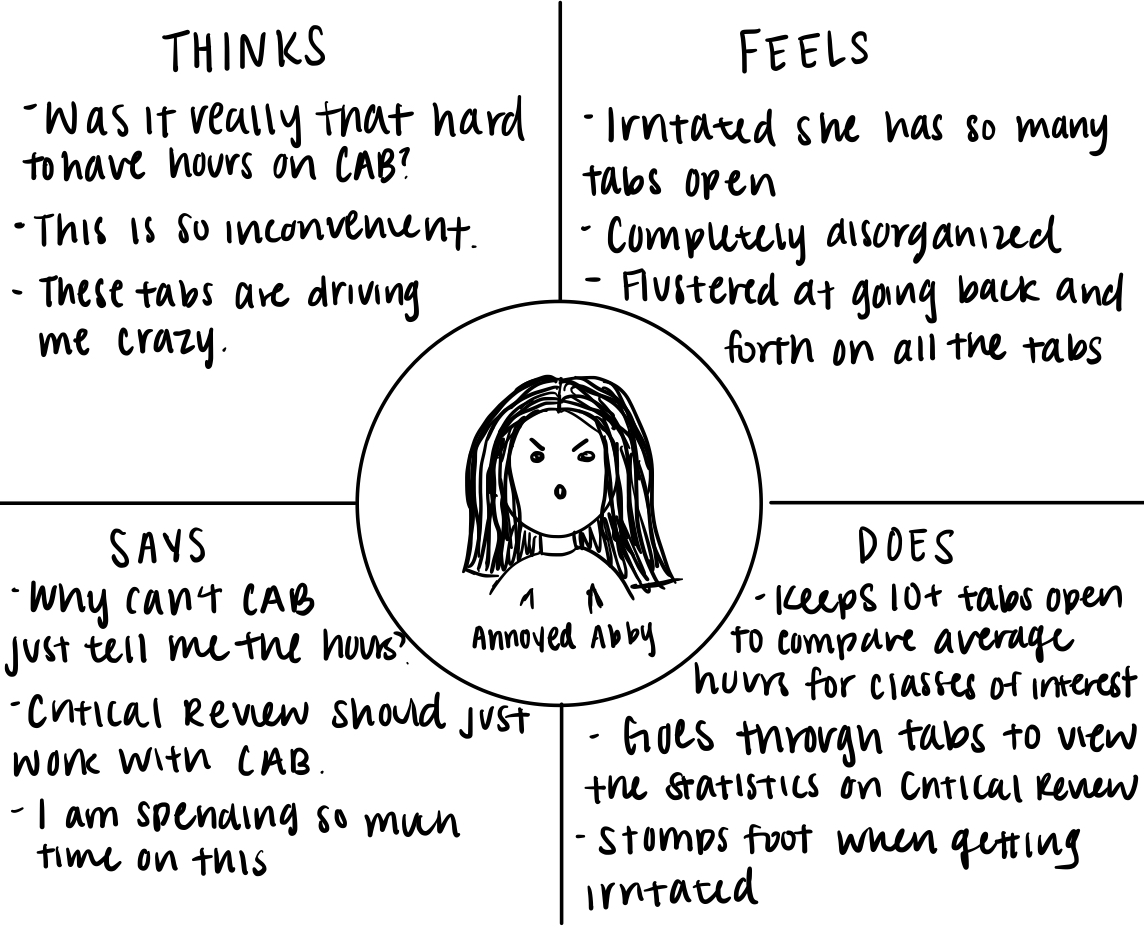 THINKS
-Was it really that hard
to have hours on CAB?
-This is so inconvenient.
- These tabs are driving
me crazy.
FEELS
-Irritated she has so many
tabs open
-Completely disorganized
- Flustered at going back and
forth on all the tabs
Annoyed Abby
SAYS
-Why can't CAB
just tell me the hours?
-Critical Review should just
work with CAB.
- I am spending so much
time on this
DOES
-Keeps 10+ tabs open
to compare average
hours for classes of interest
- Goes through tabs to view
the statistics on Critical Review
-Stomps foot when getting
irritated